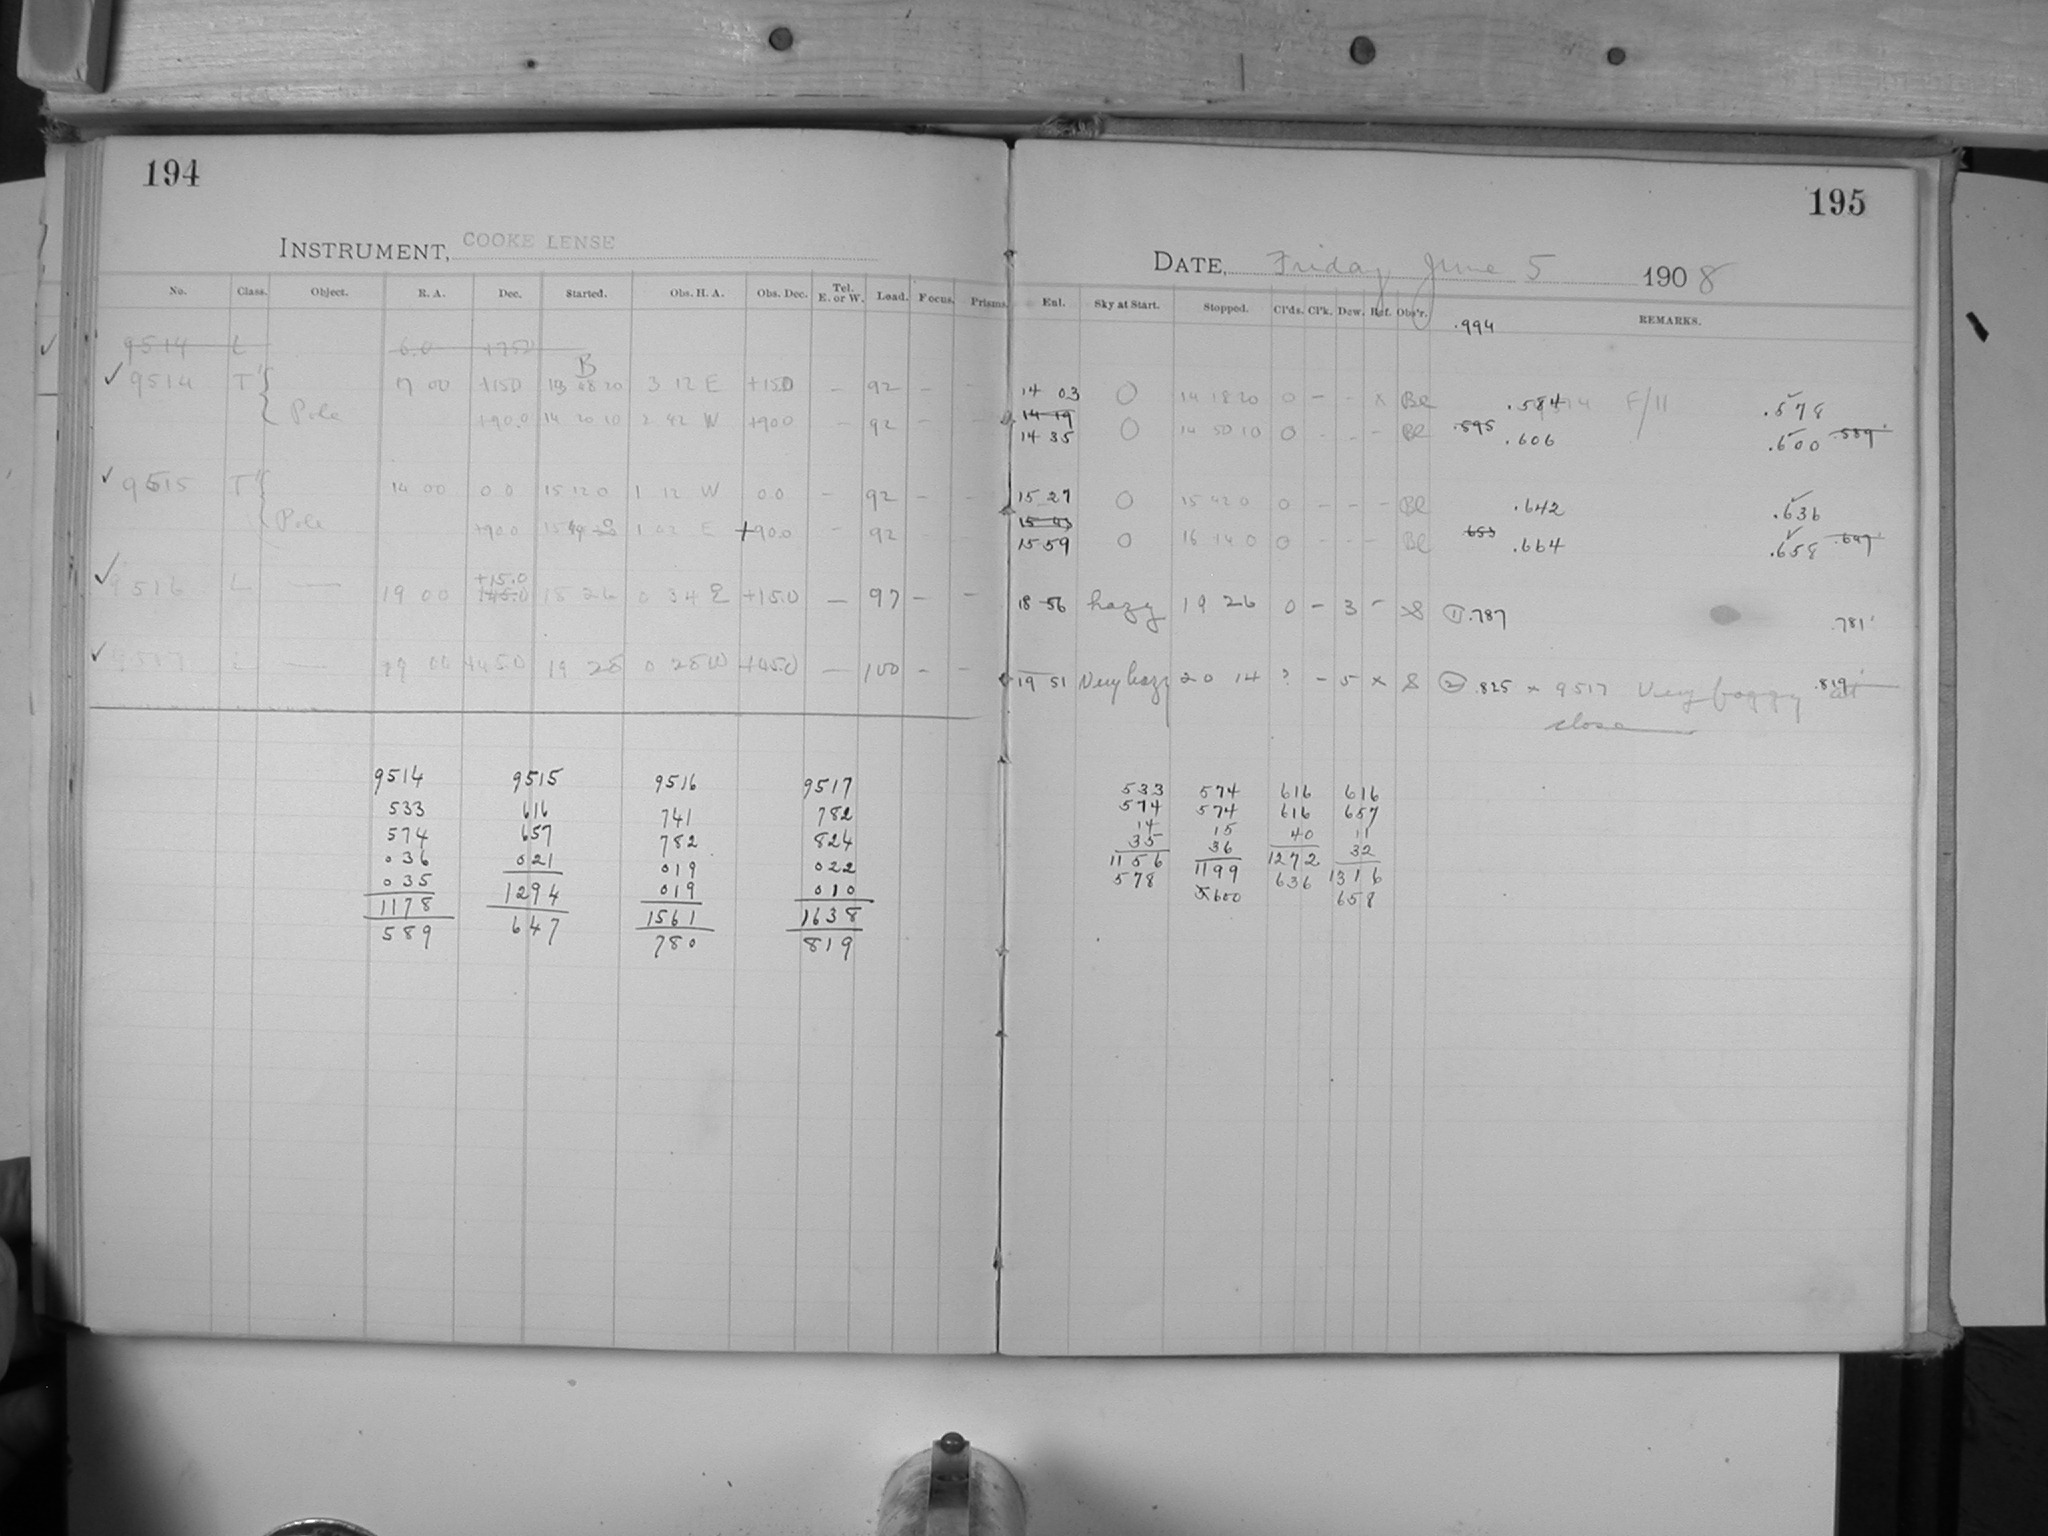 194
INSTRUMENT, COOKE LENSE
No. Class. Object. R. A. Dec. Started. Obs. H. A. Obs. Dec. Tel. E. or W. Load. Focus. Prisms.
9514 L 6.0 +75.0
9514 T' 7 00 +15.0 13 48 20 3 12 E +15.0 - 92 - -
B
Pole +90.0 14 20 10 2 42 W +90.0 - 92 - -
9515 T' 14 00 0.0 15 12 0 1 12 W 0.0 - 92 - -
Pole +90.0 15 44 1 02 E +90.0 - 92 - -
+15.0
9516 L — 19 00 +45.0 18 26 0 34 E +15.0 — 97 - -
9517 L — 19 00 +45.0 19 28 0 28 W +45.0 — 100 - -
9514 9515 9516 9517
533 616 741 782
574 657 782 824
036 021 019 022
035 1294 019 010
1178 647 1561 1638
589 780 819
195
DATE, Friday June 5 1908
Enl. Sky at Start. Stopped. Cl'ds. Cl'k. Dew. Ref. Obs'r. REMARKS.
.994
14 03 0 14 18 20 0 - - x Bl .584 9514 F/11 .578
14 19
14 35 0 14 50 10 0 - - - Bl .595 .606 .600 .589
15 27 0 15 42 0 0 - - - Bl .642 .636
15 43
15 59 0 16 14 0 0 - - - Bl .653 .664 .658 .647
18 56 hazy 19 26 0 - 3 - S ① .787 .781
19 51 Very hazy 20 14 ? - 5 x S ② .825 x 9517 Very foggy at .819
close
533 574 616 616
574 574 616 657
14 15 40 11
35 36 1272 32
1156 1199 636 1316
578 600 658